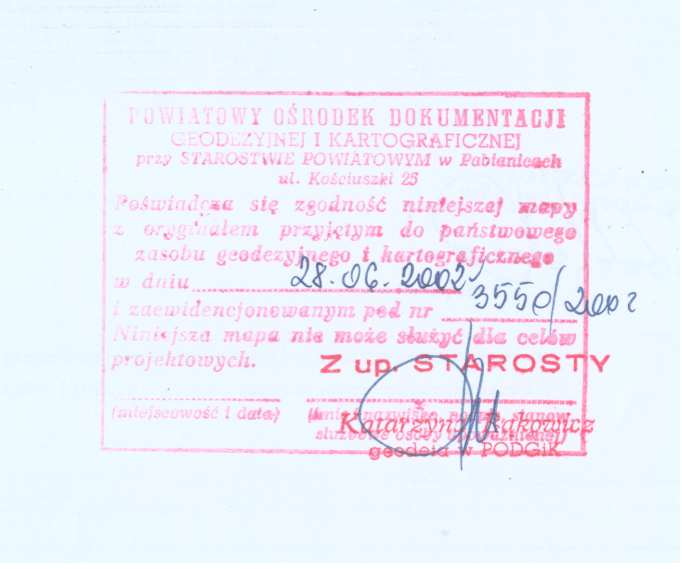 POWIATOWY OŚRODEK DOKUMENTACJI
GEODEZYJNEJ I KARTOGRAFICZNEJ
przy STAROSTWIE POWIATOWYM w Pabianicach
ul. Kościuszki 25
Poświadcza się zgodność niniejszej mapy
z oryginałem przyjętym do państwowego
zasobu geodezyjnego i kartograficznego
w dniu 28.06.2002
i zaewidencjonowanym pod nr 3550/2002
Niniejsza mapa nie może służyć dla celów
projektowych.
Z up. STAROSTY
(miejscowość i data)
(imię i nazwisko, podpis, stanow.
służbowe osoby upoważnionej)
Katarzyna
geodeta w PODGiK